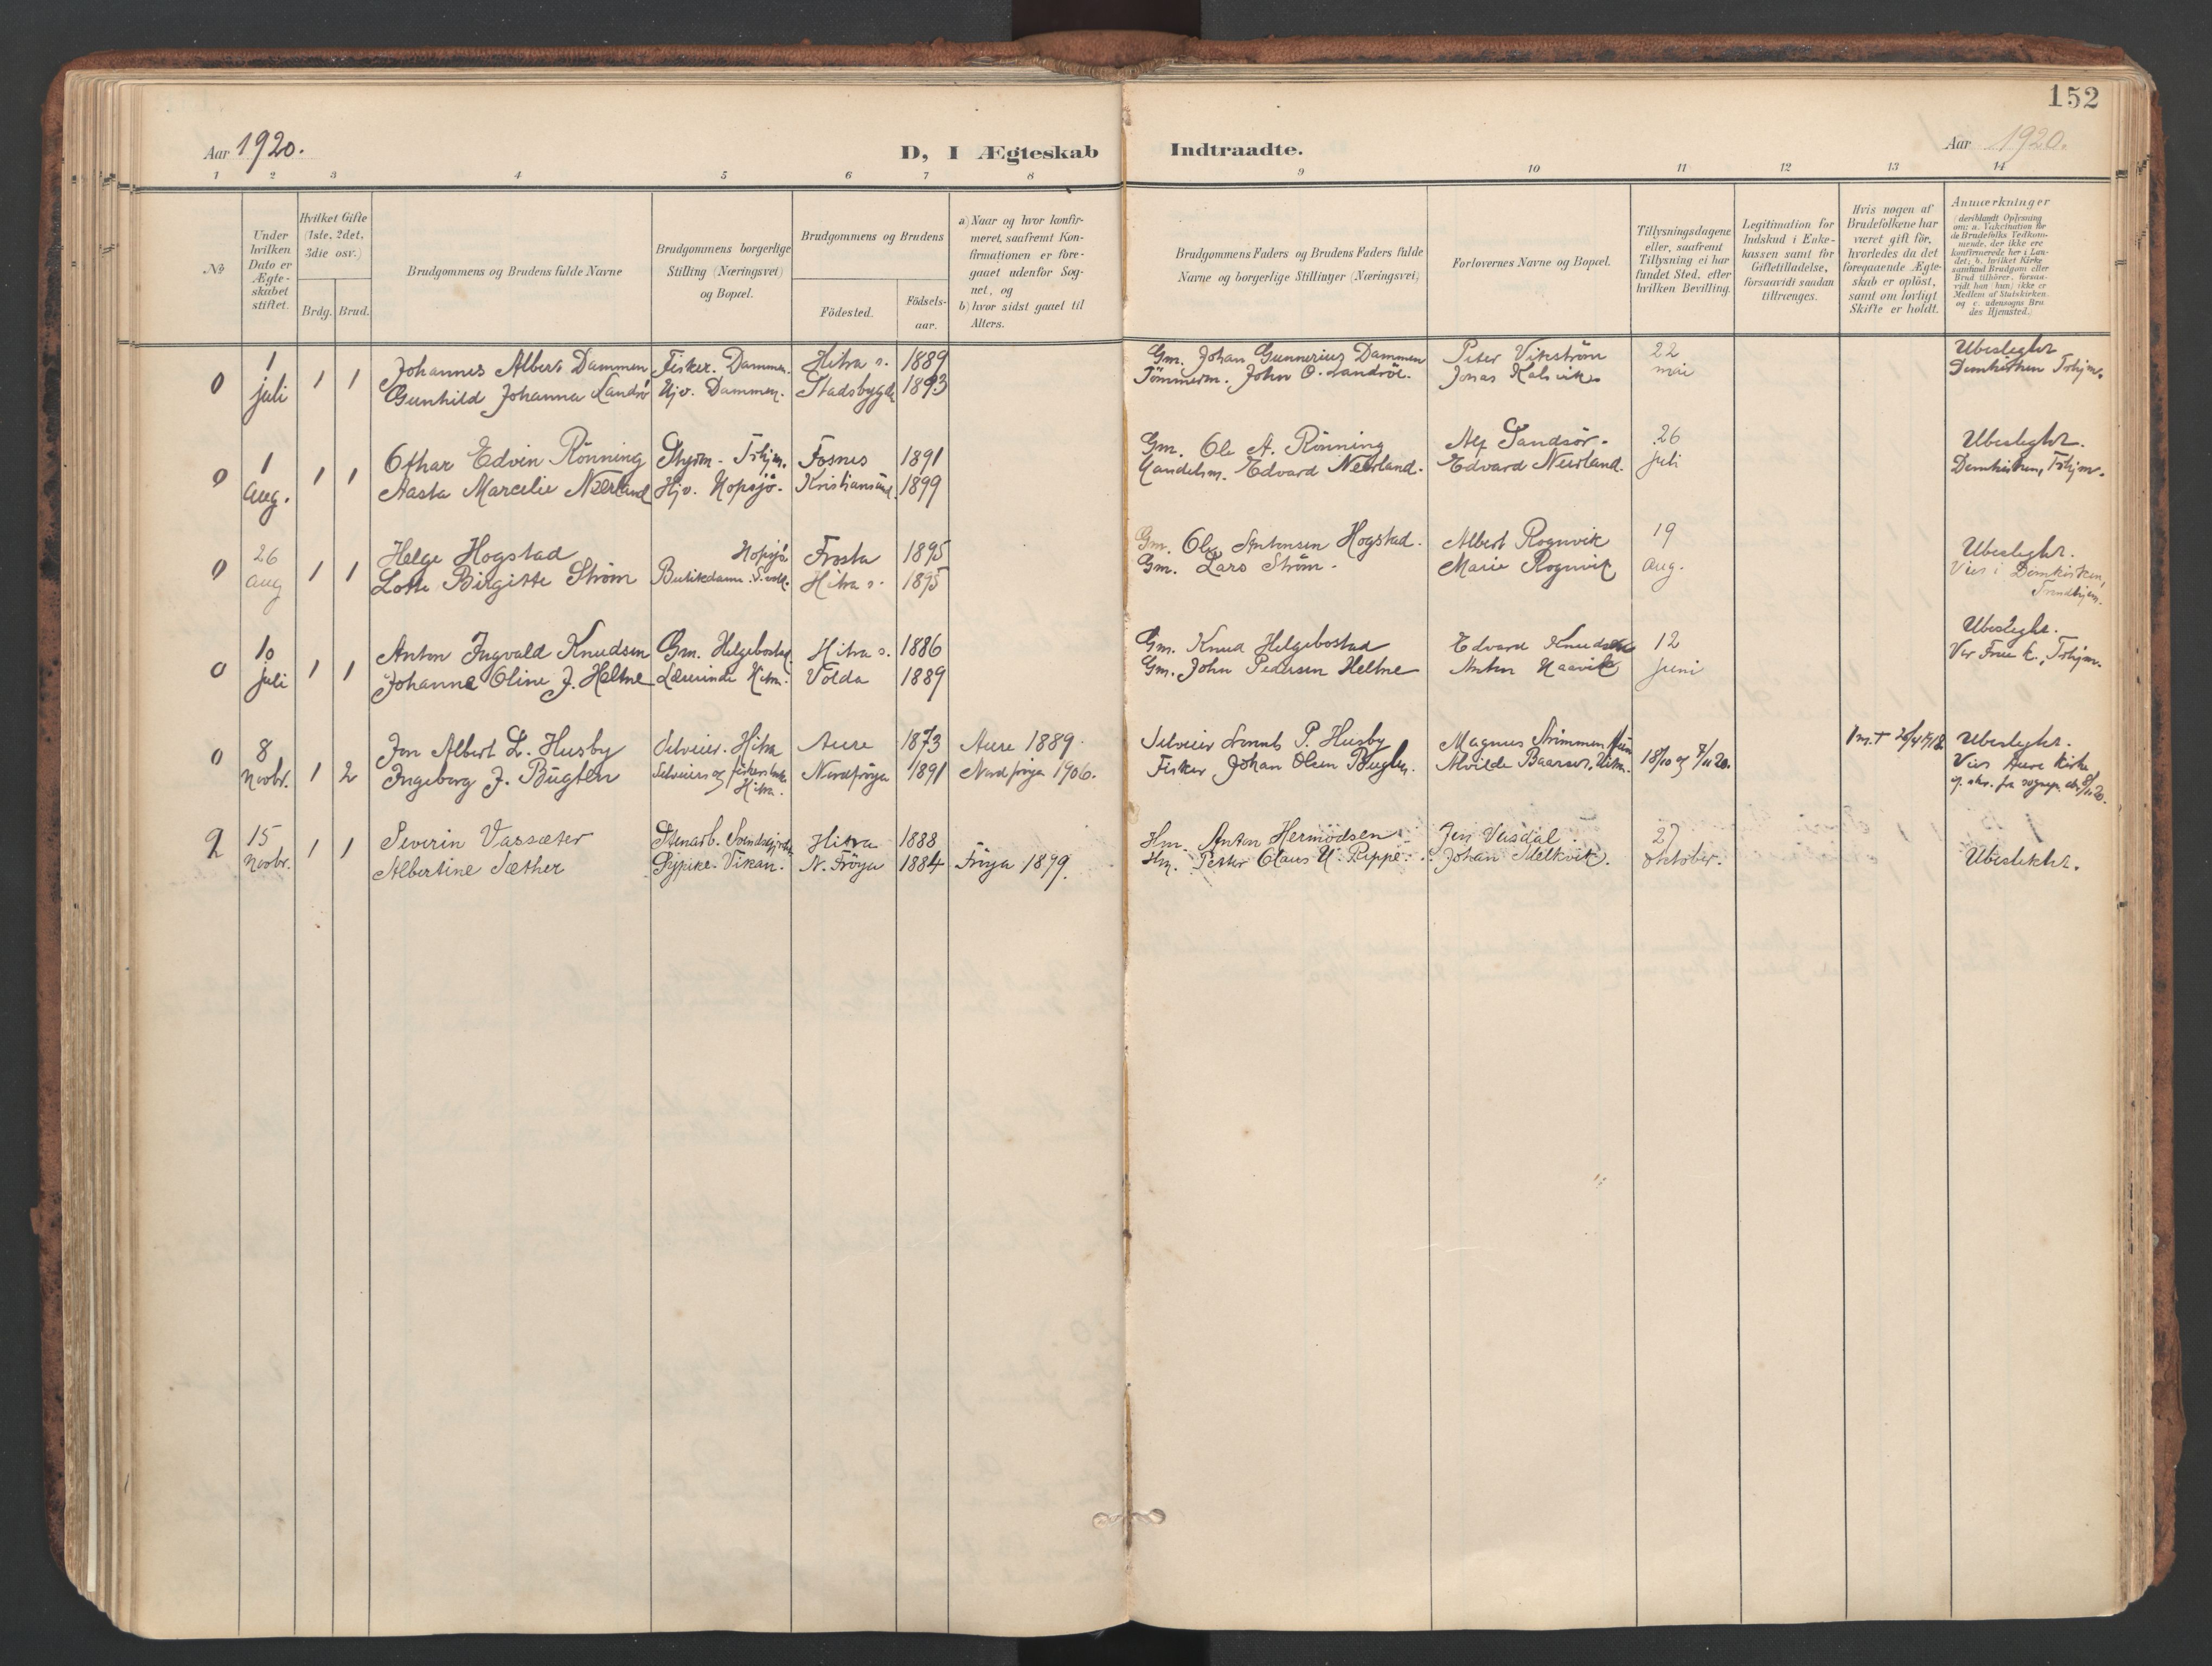 152
Aar 1920.
D, I Ægteskab Indtraadte.
Aar 1920.
1 2 3 4 5 6 7 8 9 10 11 12 13 14
№
Under hvilken Dato er Ægteskabet stiftet.
Hvilket Gifte (1ste, 2det, 3die osv.)
Brdg. Brud.
Brudgommens og Brudens fulde Navne
Brudgommens borgerlige Stilling (Næringsvei) og Bopæl.
Brudgommens og Brudens
Födested.
Födselsaar.
a) Naar og hvor konfirmeret, saafremt Konfirmationen er foregaaet udenfor Sognet, og
b) hvor sidst gaaet til Alters.
Brudgommens Faders og Brudens Faders fulde Navne og borgerlige Stillinger (Næringsvei)
Forlovernes Navne og Bopæl.
Tillysningsdagene eller, saafremt Tillysning ei har fundet Sted, efter hvilken Bevilling.
Legitimation for Indskud i Enkekassen samt for Giftetilladelse, forsaavidt saadan tiltrænges.
Hvis nogen af Brudefolkene har været gift för, hvorledes da det foregaaende Ægteskab er oplöst, samt om lovligt Skifte er holdt.
Anmærkninger
(deriblandt Oplysning om: a. Vakcination for de Brudefolks Vedkommende, der ikke ere konfirmerede her i Landet; b. hvilket Kirkesamfund Brudgom eller Brud tilhörer, forsaavidt han (hun) ikke er Medlem af Statskirken, og c. udensogns Brudes Hjemsted.)
0 1 juli 1 1 Johannes Albert Dammen Fisker. Dammen. Hitra s. 1889 Gm. Johan Gunnerius Dammen Peter Vikström 22 mai Ubeslegtet
Gunhild Johanna Landrö Hjv. Dammen. Stadsbygden 1893 Tömmerm. John O. Landröe. Jonas Kalsvik Domkirken Trhjm.
0 1 Aug. 1 1 Othar Edvin Rönning Styrm. Trhjm. Fosnes 1891 Gm. Ole A. Rönning Alf Sandsör. 26 juli Ubeslegtet.
Aasta Marcelie Neerland Hjv. Hopsjö. Kristiansund. 1899 Handelsm. Edvard Neerland. Edvard Neerland. Domkirken, Trhjm.
0 26 aug 1 1 Helge Hogstad Hopsjö Frosta 1895 Gm. Ole Antonsen Hogstad. Albert Rognvik 19 Aug. Ubeslegtet.
Lotte Birgitte Ström Butikdame. Hitra s. 1895 Gm. Lars Ström. Marie Rognvik Viet i Domkirken,
Trondhjem.
0 10 juli 1 1 Anton Ingvald Knudsen Gm. Helgebostad. Hitra s. 1886 Gm. Knud Helgebostad Edvard Knudsen 12 juni Ubeslegt.
Johanne Oline J. Heltne Lærerinde Hitra. Volda 1889 Gm. John Pedersen Heltne Anton Haavik Vor Frue k., Trhjm.
0 8 Novbr. 1 2 Jon Albert L. Husby Selveier. Hitra Aure 1873 Aure 1889. Selveier P. Husby Magnus Strömmen 18/10 og 7/11 20. Ubeslegtet.
Ingeborg J. Bugten Selveier og fiskerenke Hitra. Nordfröya 1891 Nordfröya 1906. Fisker Johan Olsen Bugten. Alvilde Baarset, Hitra. Viet Aure kirke
2 15 Novbr. 1 1 Severin Vassæter Stenarb. Hitra 1888 Hm. Anton Hermodsen Jens Uvsdal. 27 oktober.
Albertine Sæther Sypike. Vikan. N. Fröya 1884 Fröya 1899. Hm. Petter Olaus U. Reppe. Johan Melkvik. Ubeslektet.